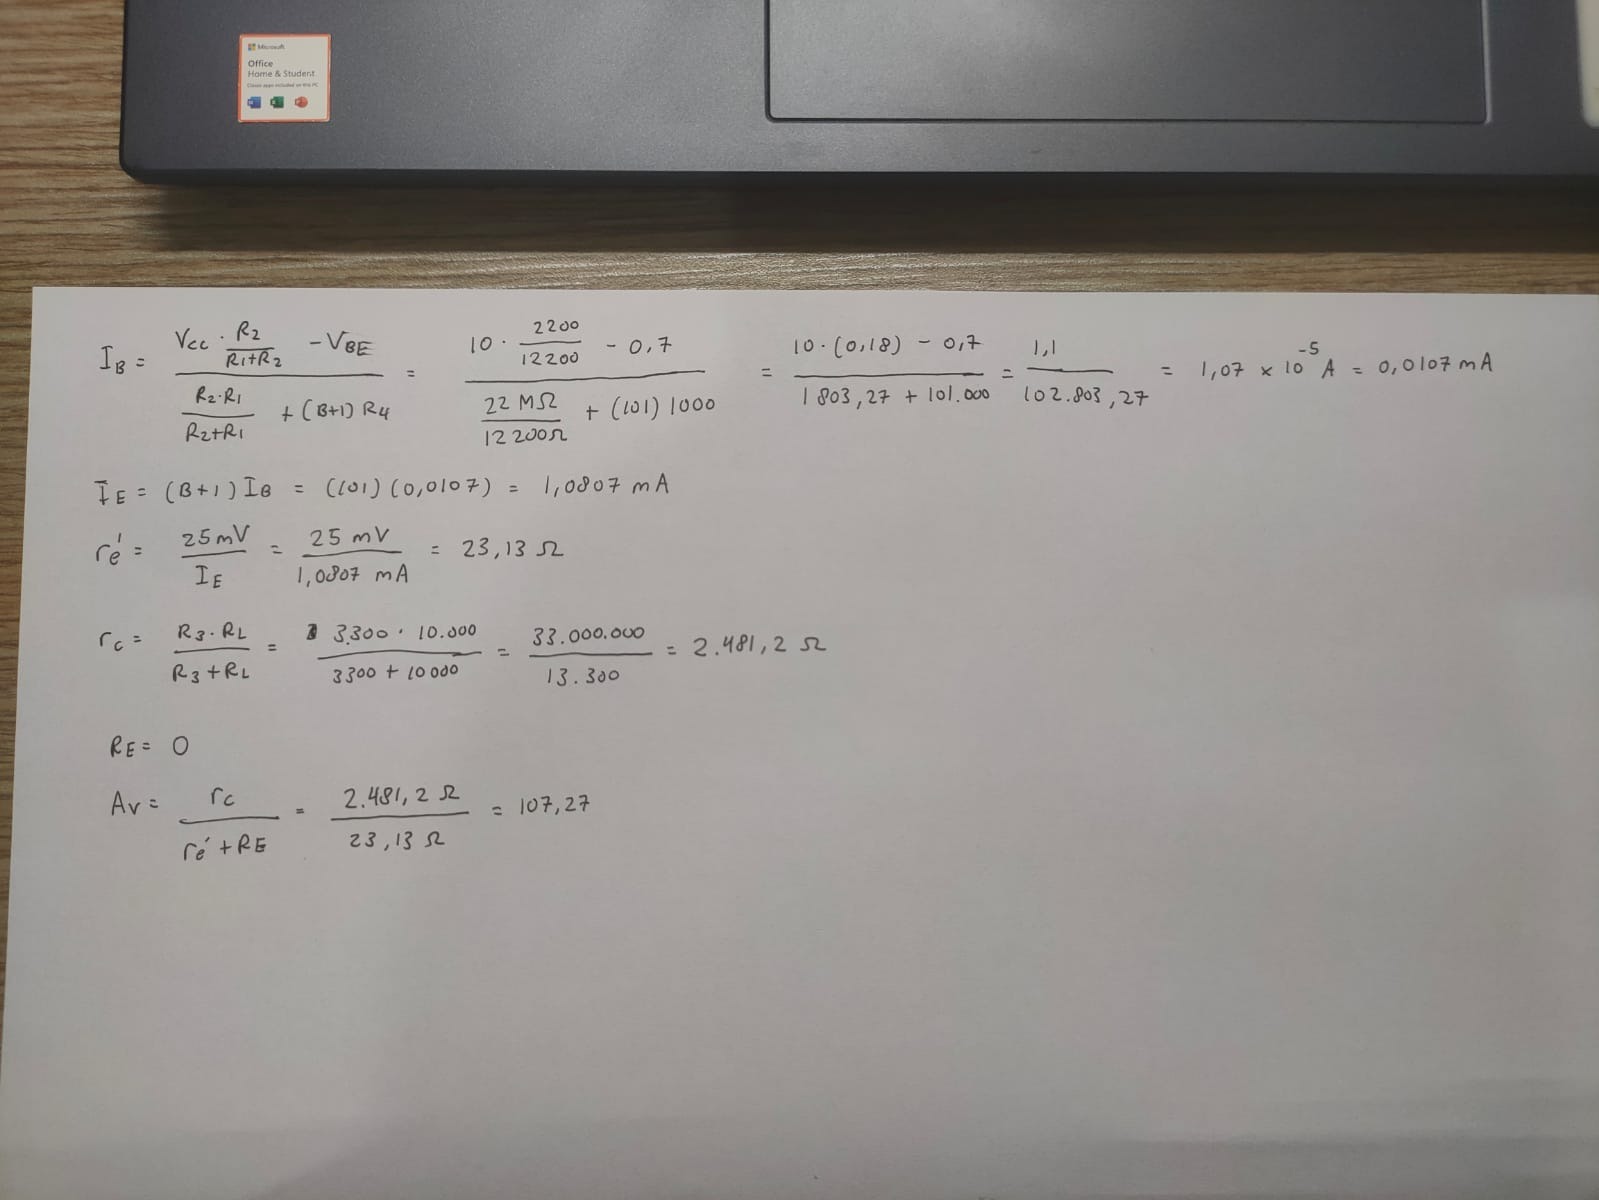 Microsoft
Office
Home & Student
Classic apps included on this PC
I_B = (Vcc · R2/(R1+R2) - V_BE) / (R2·R1/(R2+R1) + (B+1) R4) = (10 · 2200/12200 - 0,7) / (22 MΩ/12200Ω + (101) 1000) = (10·(0,18) - 0,7) / (1803,27 + 101.000) = 1,1 / 102.803,27 = 1,07 × 10^-5 A = 0,0107 mA
I_E = (B+1) I_B = (101) (0,0107) = 1,0807 mA
re' = 25mV / I_E = 25 mV / 1,0807 mA = 23,13 Ω
rc = R3·RL / (R3+RL) = 3300 · 10.000 / (3300 + 10000) = 33.000.000 / 13.300 = 2.481,2 Ω
RE = 0
Av = rc / (re' + RE) = 2.481,2 Ω / 23,13 Ω = 107,27